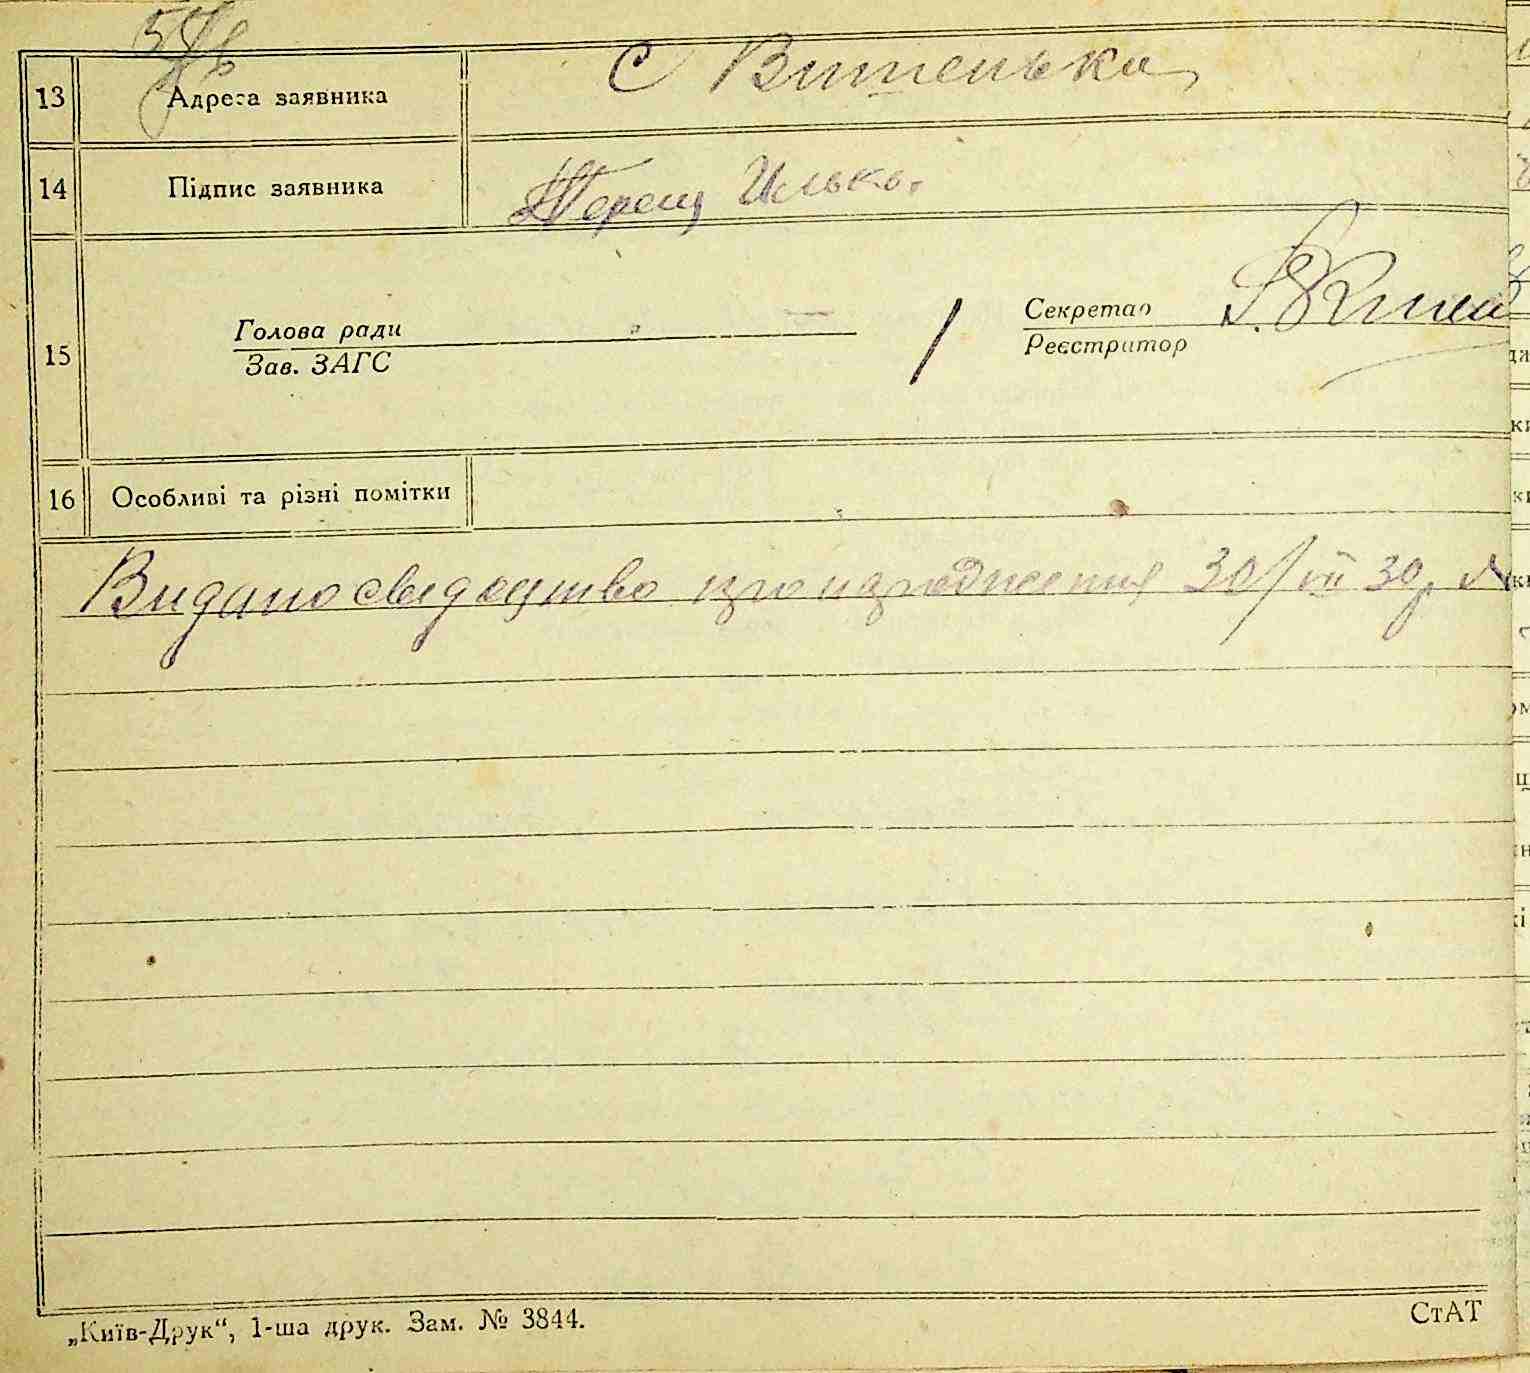 13 Адреса заявника С Витенька
14 Підпис заявника Терещ Илько.
15 Голова ради
Зав. ЗАГС
Секретар
Реєстратор
16 Особливі та різні помітки
Видано свідоцтво про народження 30/VII 30р.
„Київ-Друк“, 1-ша друк. Зам. № 3844.
СтАТ